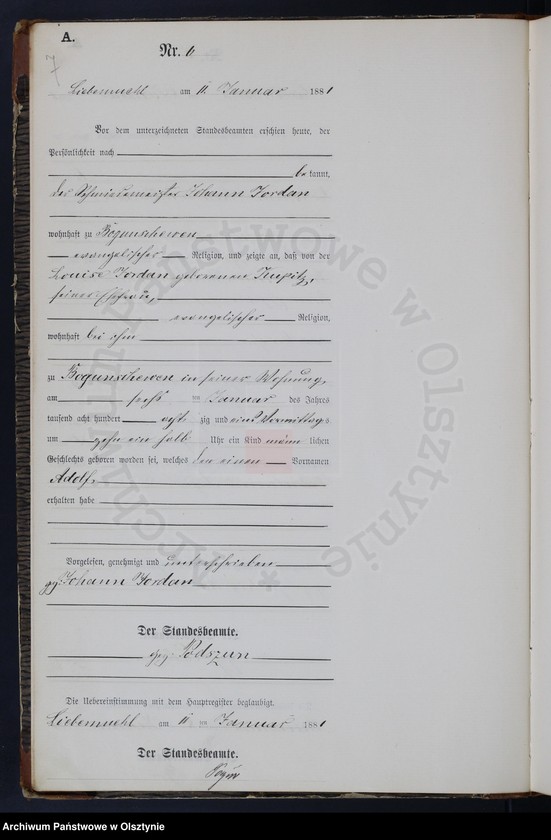 A.
7
Nr. 6
Liebemuehl am 11. Januar 1881
Vor dem unterzeichneten Standesbeamten erschien heute, der
Persönlichkeit nach
bekannt,
der Schmiedemeister Johann Jordan
wohnhaft zu Bogunschewen
evangelischer Religion, und zeigte an, daß von der
Louise Jordan geborenen
seiner Ehefrau,
evangelischer Religion,
wohnhaft bei ihm
zu Bogunschewen in seiner Wohnung,
am sechs ten Januar des Jahres
tausend acht hundert acht zig und eins Vormittags
um zehn ein halb Uhr ein Kind männ lichen
Geschlechts geboren worden sei, welches den einen Vornamen
Adolf,
erhalten habe
Vorgelesen, genehmigt und unterschrieben
gez. Johann Jordan
Der Standesbeamte.
gez. Podszun
Die Uebereinstimmung mit dem Hauptregister beglaubigt.
Liebemuehl am 11 ten Januar 1881
Der Standesbeamte.
Archiwum Państwowe w Olsztynie
Archiwum Państwowe w Olsztynie